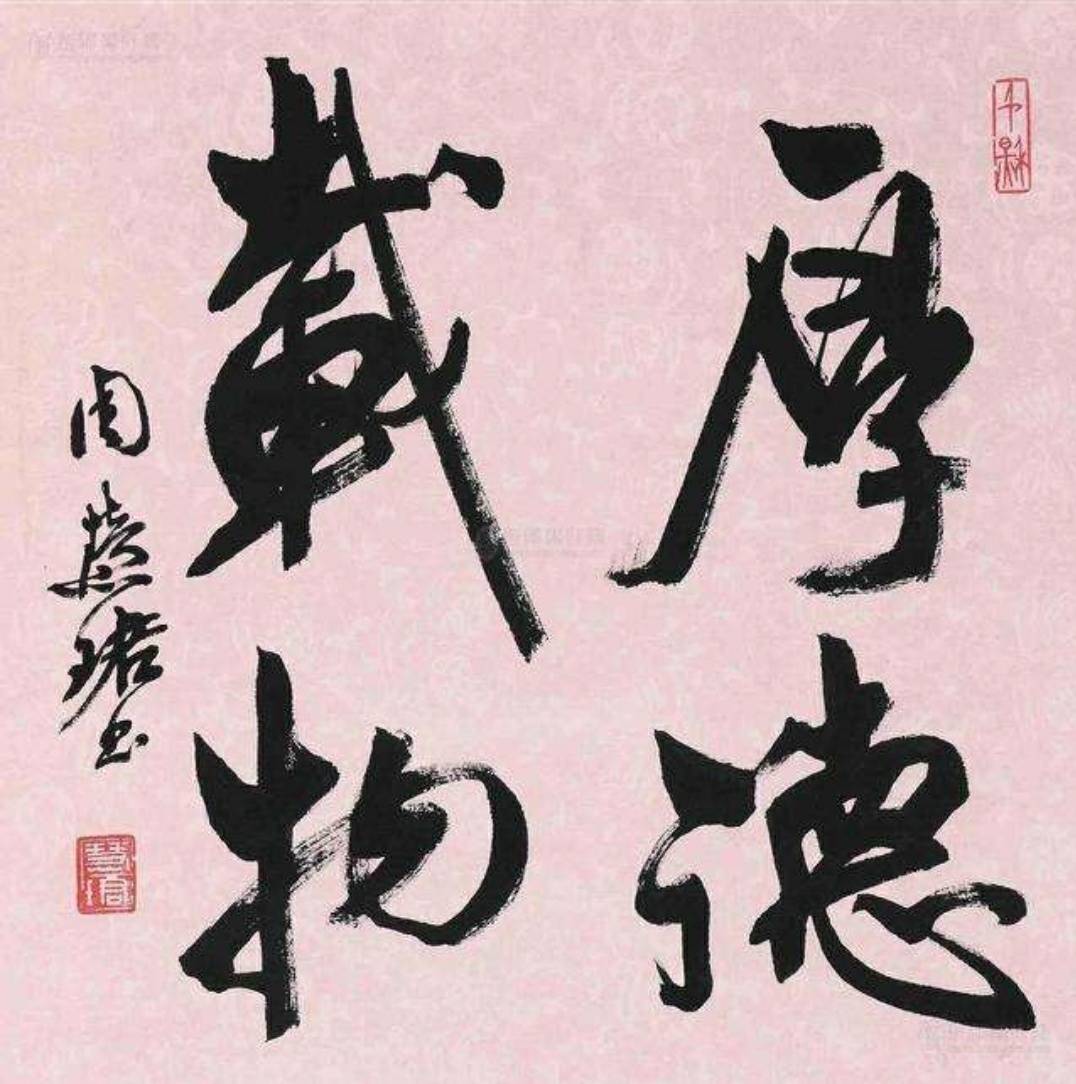 厚德
載物
周慧珺书